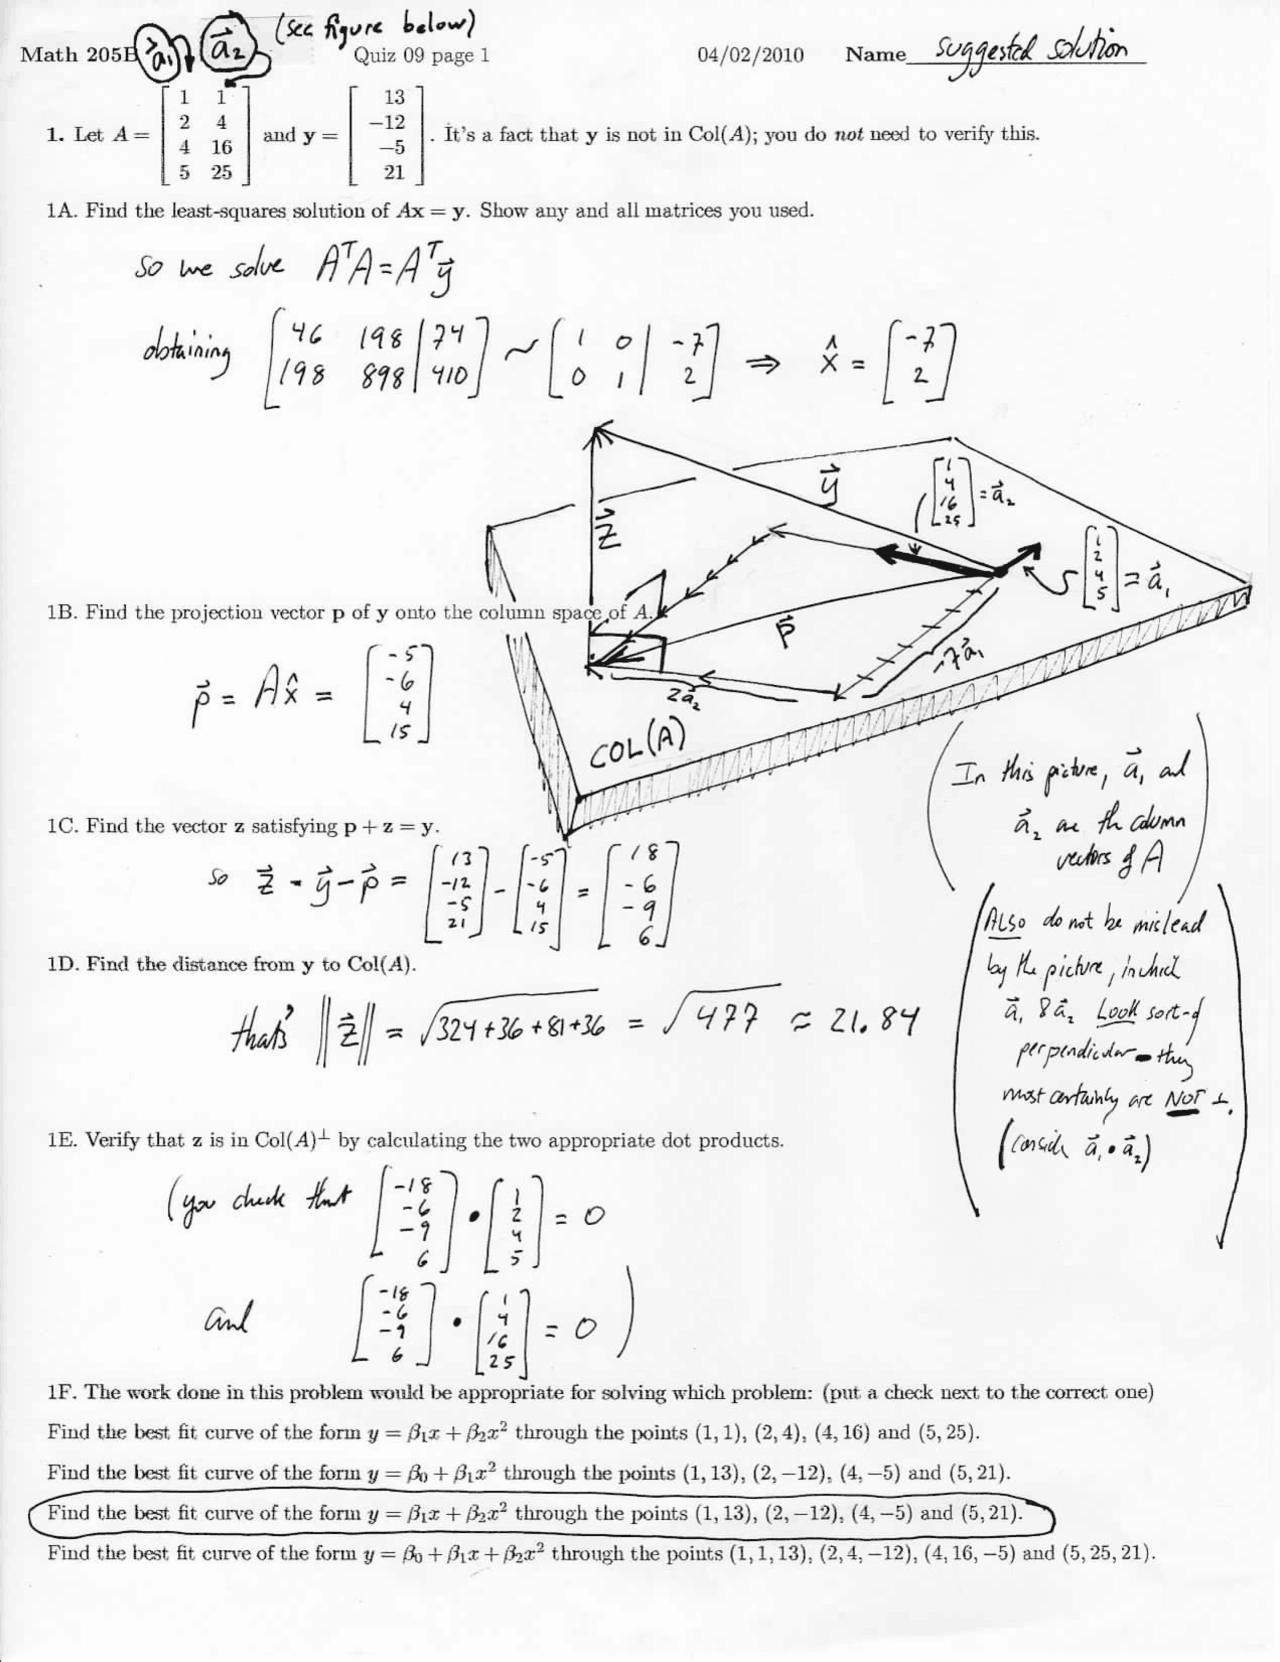 (see figure below)
Math 205B a⃗₁ a⃗₂ Quiz 09 page 1 04/02/2010 Name suggested solution
1. Let A = [ 1 1 ; 2 4 ; 4 16 ; 5 25 ] and y = [ 13 ; −12 ; −5 ; 21 ]. It's a fact that y is not in Col(A); you do not need to verify this.
1A. Find the least-squares solution of Ax = y. Show any and all matrices you used.
so we solve AᵀA = Aᵀy⃗
obtaining [ 46 198 | 74 ; 198 898 | 410 ] ~ [ 1 0 | -7 ; 0 1 | 2 ] ⇒ x̂ = [ -7 ; 2 ]
y⃗
[ 1 ; 4 ; 16 ; 25 ] = a⃗₂
z⃗
[ 1 ; 2 ; 4 ; 5 ] = a⃗₁
1B. Find the projection vector p of y onto the column space of A.
p⃗
-7a⃗₁
2a⃗₂
COL(A)
p⃗ = Ax̂ = [ -5 ; -6 ; 4 ; 15 ]
(In this picture, a⃗₁ and
a⃗₂ are the column
vectors of A)
1C. Find the vector z satisfying p + z = y.
so z⃗ = y⃗ - p⃗ = [ 13 ; -12 ; -5 ; 21 ] - [ -5 ; -6 ; 4 ; 15 ] = [ 18 ; -6 ; -9 ; 6 ]
(ALSO do not be mislead
by the picture, in which
a⃗₁ & a⃗₂ Look sort-of
perpendicular - they
most certainly are NOT ⊥.
(consider a⃗₁ • a⃗₂)
1D. Find the distance from y to Col(A).
that's ||z⃗|| = √324+36+81+36 = √477 ≈ 21.84
1E. Verify that z is in Col(A)⊥ by calculating the two appropriate dot products.
(you check that [ -18 ; -6 ; -9 ; 6 ] • [ 1 ; 2 ; 4 ; 5 ] = 0
and [ -18 ; -6 ; -9 ; 6 ] • [ 1 ; 4 ; 16 ; 25 ] = 0 )
1F. The work done in this problem would be appropriate for solving which problem: (put a check next to the correct one)
Find the best fit curve of the form y = β₁x + β₂x² through the points (1, 1), (2, 4), (4, 16) and (5, 25).
Find the best fit curve of the form y = β₀ + β₁x² through the points (1, 13), (2, −12), (4, −5) and (5, 21).
Find the best fit curve of the form y = β₁x + β₂x² through the points (1, 13), (2, −12), (4, −5) and (5, 21).
Find the best fit curve of the form y = β₀ + β₁x + β₂x² through the points (1, 1, 13), (2, 4, −12), (4, 16, −5) and (5, 25, 21).